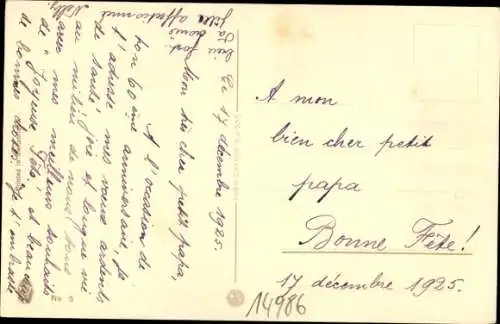 Ce 17 décembre 1925.
Mon très cher petit papa,
A l'occasion de
ton 60ème anniversaire, je
t'adresse mes vœux ardents
de santé, joie et longue vie
au milieu de nous tous
mes meilleurs souhaits
de "Joyeuse Fête" et beaucoup
de bonnes choses. Je t'embrasse
bien fort.
Ta
fille affectionnée
Nelly
A mon
bien cher petit
papa
Bonne Fête!
17 décembre 1925.
14986